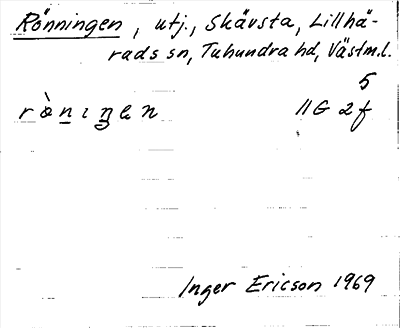 Rönningen, utj., Skävsta, Lillhä-
rads sn, Tuhundra hd, Västm.l.
5
rò̀nıŋen 11G 2f
Inger Ericson 1969